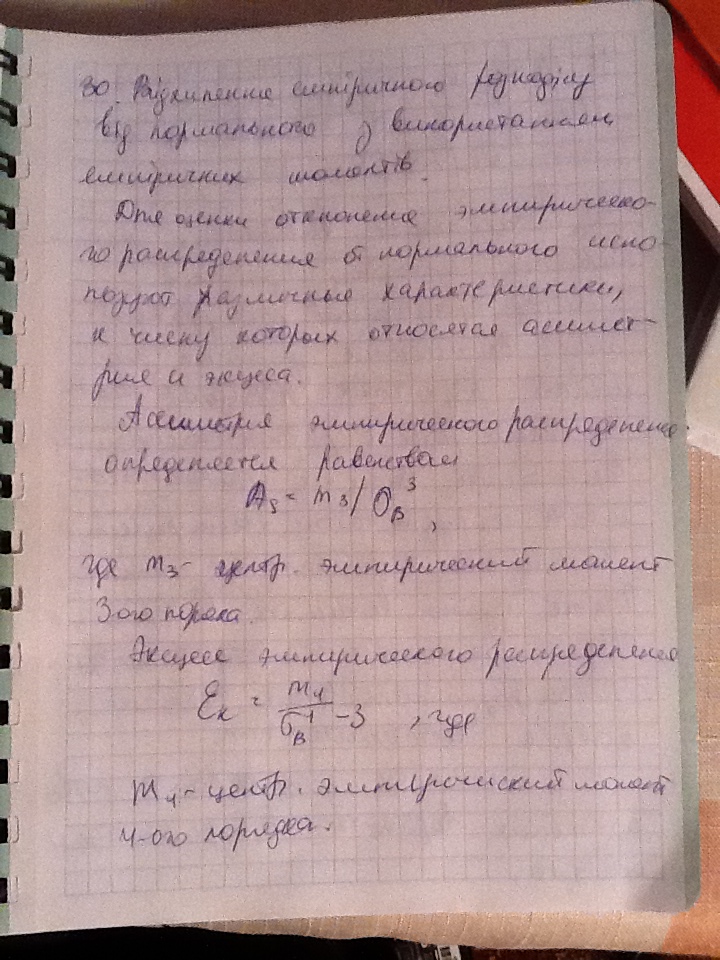 30. Відхилення емпіричного розподілу
від нормального з використанням
емпіричних моментів.
Для оценки отклонения эмпирическо-
го распределения от нормального испо-
льзуют различные характеристики,
к числу которых относятся асимет-
рия и эксцесс.
Асимметрия эмпирического распределения
определяется равенством
As = m3/σв³,
где m3- центр. эмпирический момент
3-ого порядка.
Эксцесс эмпирического распределения
Ek = m4/σв⁴ -3, где
m4- центр. эмпирический момент
4-ого порядка.